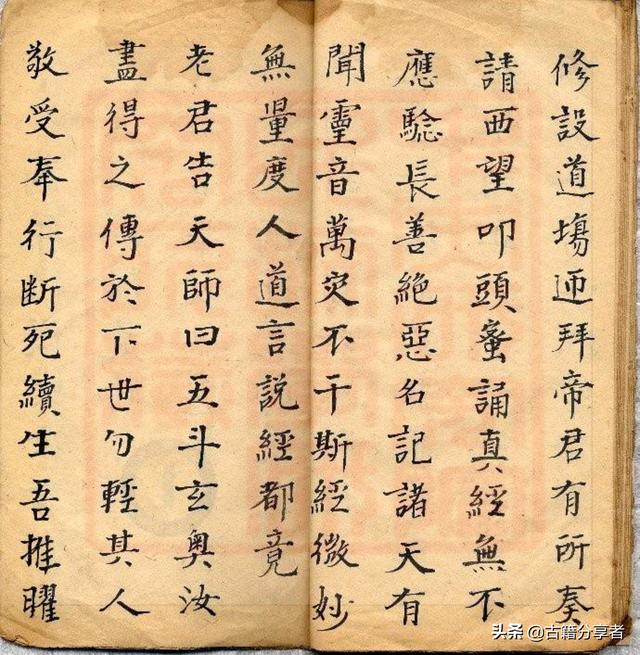 修設道塲迊拜帝君有所奏
請西望叩頭蜜誦真經無不
應驗長善絕惡名記諸天有
聞靈音萬灾不干斯經微妙
無量度人道言説經都竟
老君告天師曰五斗玄奥汝
盡得之傳於下世勿輕其人
敬受奉行断死續生吾推曜
头条@古籍分享者